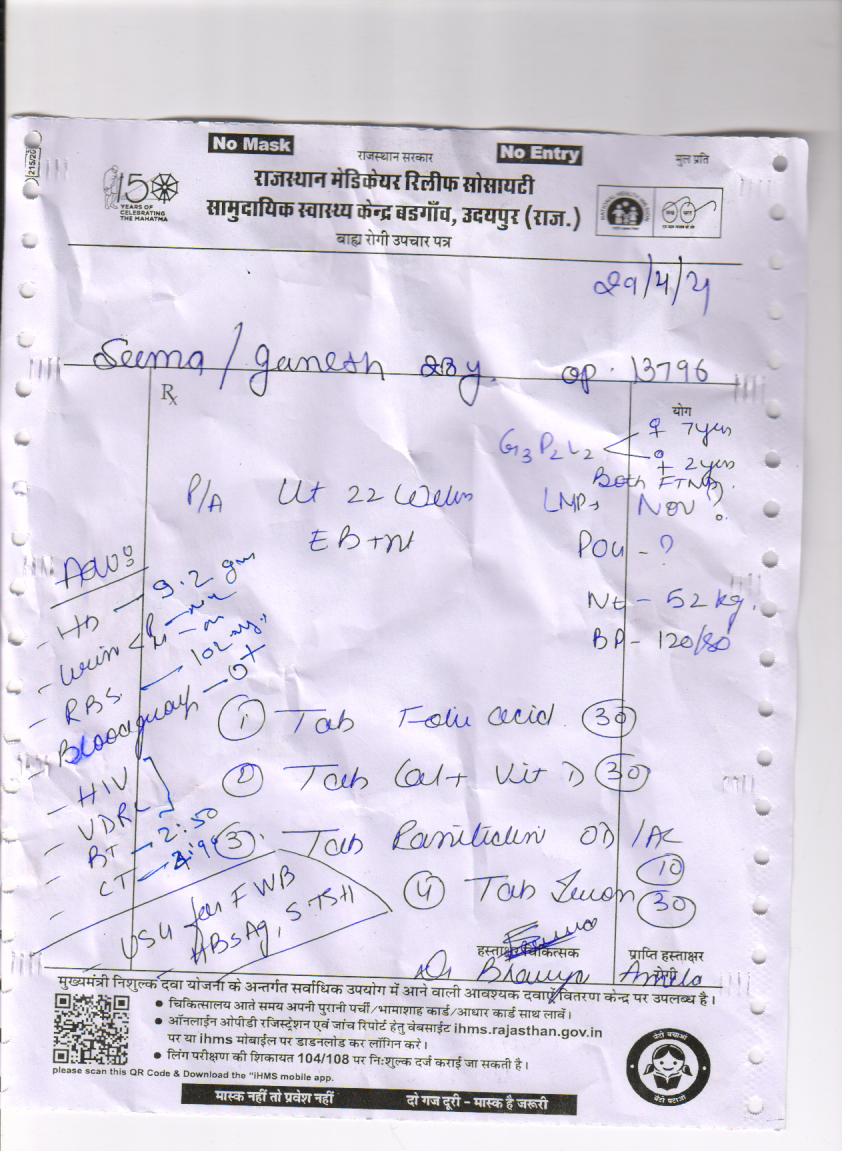 215/20
No Mask
राजस्थान सरकार
No Entry
मुल प्रति
राजस्थान मेडिकेयर रिलीफ सोसायटी
सामुदायिक स्वास्थ्य केन्द्र बडगाँव, उदयपुर (राज.)
बाह्य रोगी उपचार पत्र
150
YEARS OF
CELEBRATING
THE MAHATMA
29/4/21
Seema / Ganesh 23y. OP. 13796
Rx
योग
G3P2L2 ♀ 7yrs
♀ 2yrs
Both FTND
LMP → Nov ?
P/A Ut 22 Weeks
POG - ?
Wt - 52 kg.
BP - 120/80
Adv:
- Hb - 9.2 gm
- Urine
- RBS - 102
- Bloodgroup - O+
- HIV
- VDRL
- BT - 2:50
- CT -
USG for FWB
HBsAg, S.TSH
① Tab Folic acid 30
② Tab Cal + Vit D 30
③ Tab Ranitidin OD /AC
10
④ Tab 30
हस्ताक्षर चिकित्सक
प्राप्ति हस्ताक्षर
रोगी
Dr Bhavya
मुख्यमंत्री निशुल्क दवा योजना के अन्तर्गत सर्वाधिक उपयोग में आने वाली आवश्यक दवाएं वितरण केन्द्र पर उपलब्ध है।
• चिकित्सालय आते समय अपनी पुरानी पर्ची/भामाशाह कार्ड/आधार कार्ड साथ लावें।
• ऑनलाईन ओपीडी रजिस्ट्रेशन एवं जांच रिपोर्ट हेतु वेबसाईट ihms.rajasthan.gov.in
पर या ihms मोबाईल पर डाउनलोड कर लॉगिन करे।
• लिंग परीक्षण की शिकायत 104/108 पर निःशुल्क दर्ज कराई जा सकती है।
please scan this QR Code & Download the "iHMS mobile app.
मास्क नहीं तो प्रवेश नहीं
दो गज दूरी - मास्क है जरूरी
बेटी बचाओ
बेटी पढ़ाओ